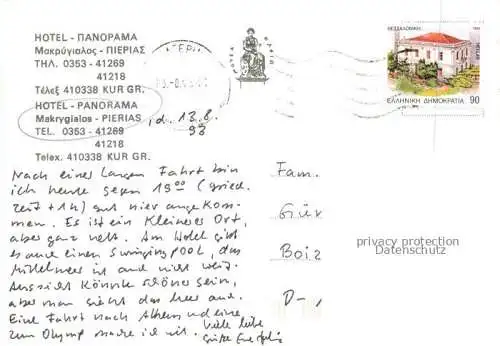 HOTEL - ΠΑΝΟΡΑΜΑ
Μακρύγιαλος - ΠΙΕΡΙΑΣ
ΤΗΛ. 0353 - 41269
41218
Τέλεξ 410338 KUR GR.
HOTEL - PANORAMA
Makrygialos - PIERIAS
TEL. 0353 - 41269
41218
Telex. 410338 KUR GR.
d. 13.8.
93
ΘΕΣΣΑΛΟΝΙΚΗ
ΕΛΛΗΝΙΚΗ ΔΗΜΟΚΡΑΤΙΑ 90
Nach einer langen Fahrt bin
ich heute gegen 19⁰⁰ (griech.
Zeit + 1h) gut hier angekom-
men. Es ist ein kleinerer Ort,
aber ganz nett. Am Hotel gibt
es auch einen Swimmingpool, das
Mittelmeer ist auch nicht weit.
Aussicht könnte schöner sein,
aber man sieht das Meer auch.
Eine Fahrt nach Athen und eine
zum Olymp mache ich mit. Viele liebe
Grüße
Fam.
Gür
Boiz
D-
privacy protection
Datenschutz